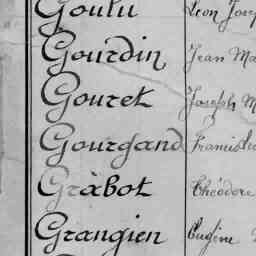 Goulu Léon Josep
Gourdin Jean Ma
Gouret Joseph M
Gourgand Francisku
Gràbot Théodore
Grangien Eugène